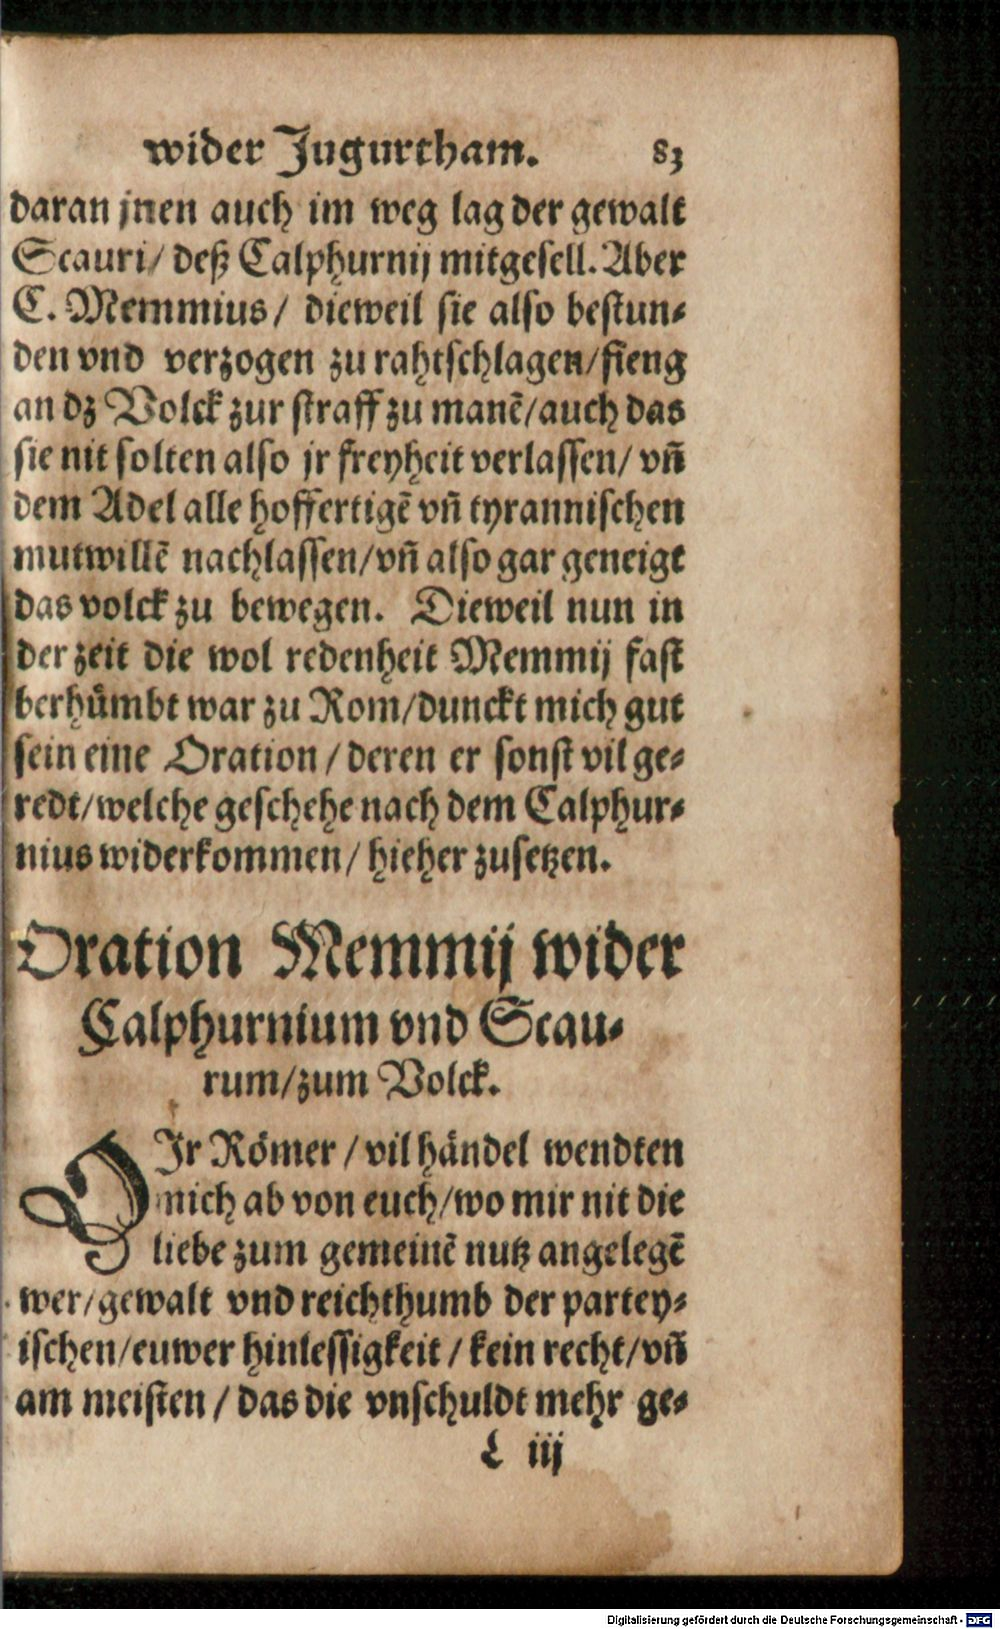 wider Jugurtham. 83
daran jnen auch im weg lag der gewalt
Scauri/ deß Calphurnij mitgesell. Aber
C. Memmius/ dieweil sie also bestun-
den vnd verzogen zu rahtschlagen/fieng
an dz Volck zur straff zu manē/auch das
sie nit solten also jr freyheit verlassen/ vñ
dem Adel alle hoffertigē vñ tyrannischen
mutwillē nachlassen/vñ also gar geneigt
das volck zu bewegen. Dieweil nun in
der zeit die wol redenheit Memmij fast
berhůmbt war zu Rom/dunckt mich gut
sein eine Oration / deren er sonst vil ge-
redt/welche geschehe nach dem Calphur-
nius widerkommen/ hieher zusetzen.
Oration Memmij wider
Calphurnium vnd Scau-
rum/zum Volck.
IJr Römer / vil händel wendten
mich ab von euch/wo mir nit die
liebe zum gemeinē nutz angelegē
wer/gewalt vnd reichthumb der partey-
ischen/euwer hinlessigkeit / kein recht/vñ
am meisten / das die vnschuldt mehr ge-
L iij
Digitalisierung gefördert durch die Deutsche Forschungsgemeinschaft - DFG